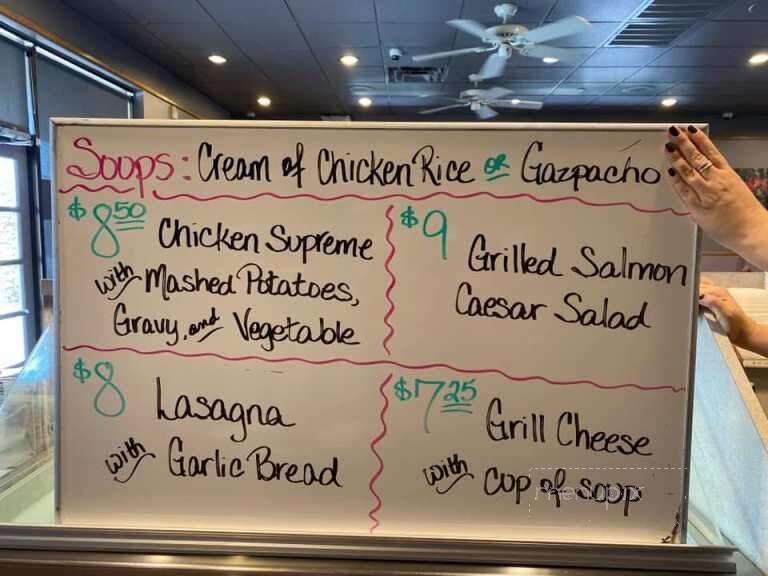 Soups: Cream of Chicken Rice or Gazpacho
$8.50 Chicken Supreme
with Mashed Potatoes,
Gravy, and Vegetable
$9 Grilled Salmon
Caesar Salad
$8 Lasagna
with Garlic Bread
$7.25 Grill Cheese
with cup of soup
menupix